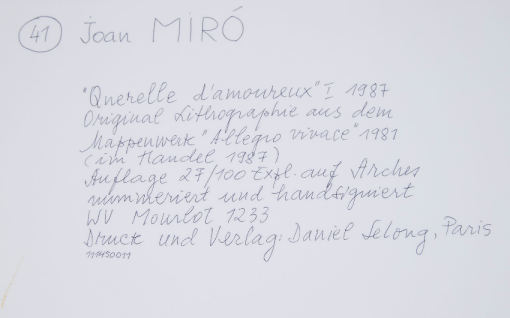 41 Joan MIRÓ
"Querelle d'amoureux" I 1987
Original Lithographie aus dem
Mappenwerk "Allegro vivace" 1981
(im Handel 1987)
Auflage 27/100 Expl. auf Arches
nummeriert und handsigniert
WV Mourlot 1233
Druck und Verlag: Daniel Lelong, Paris